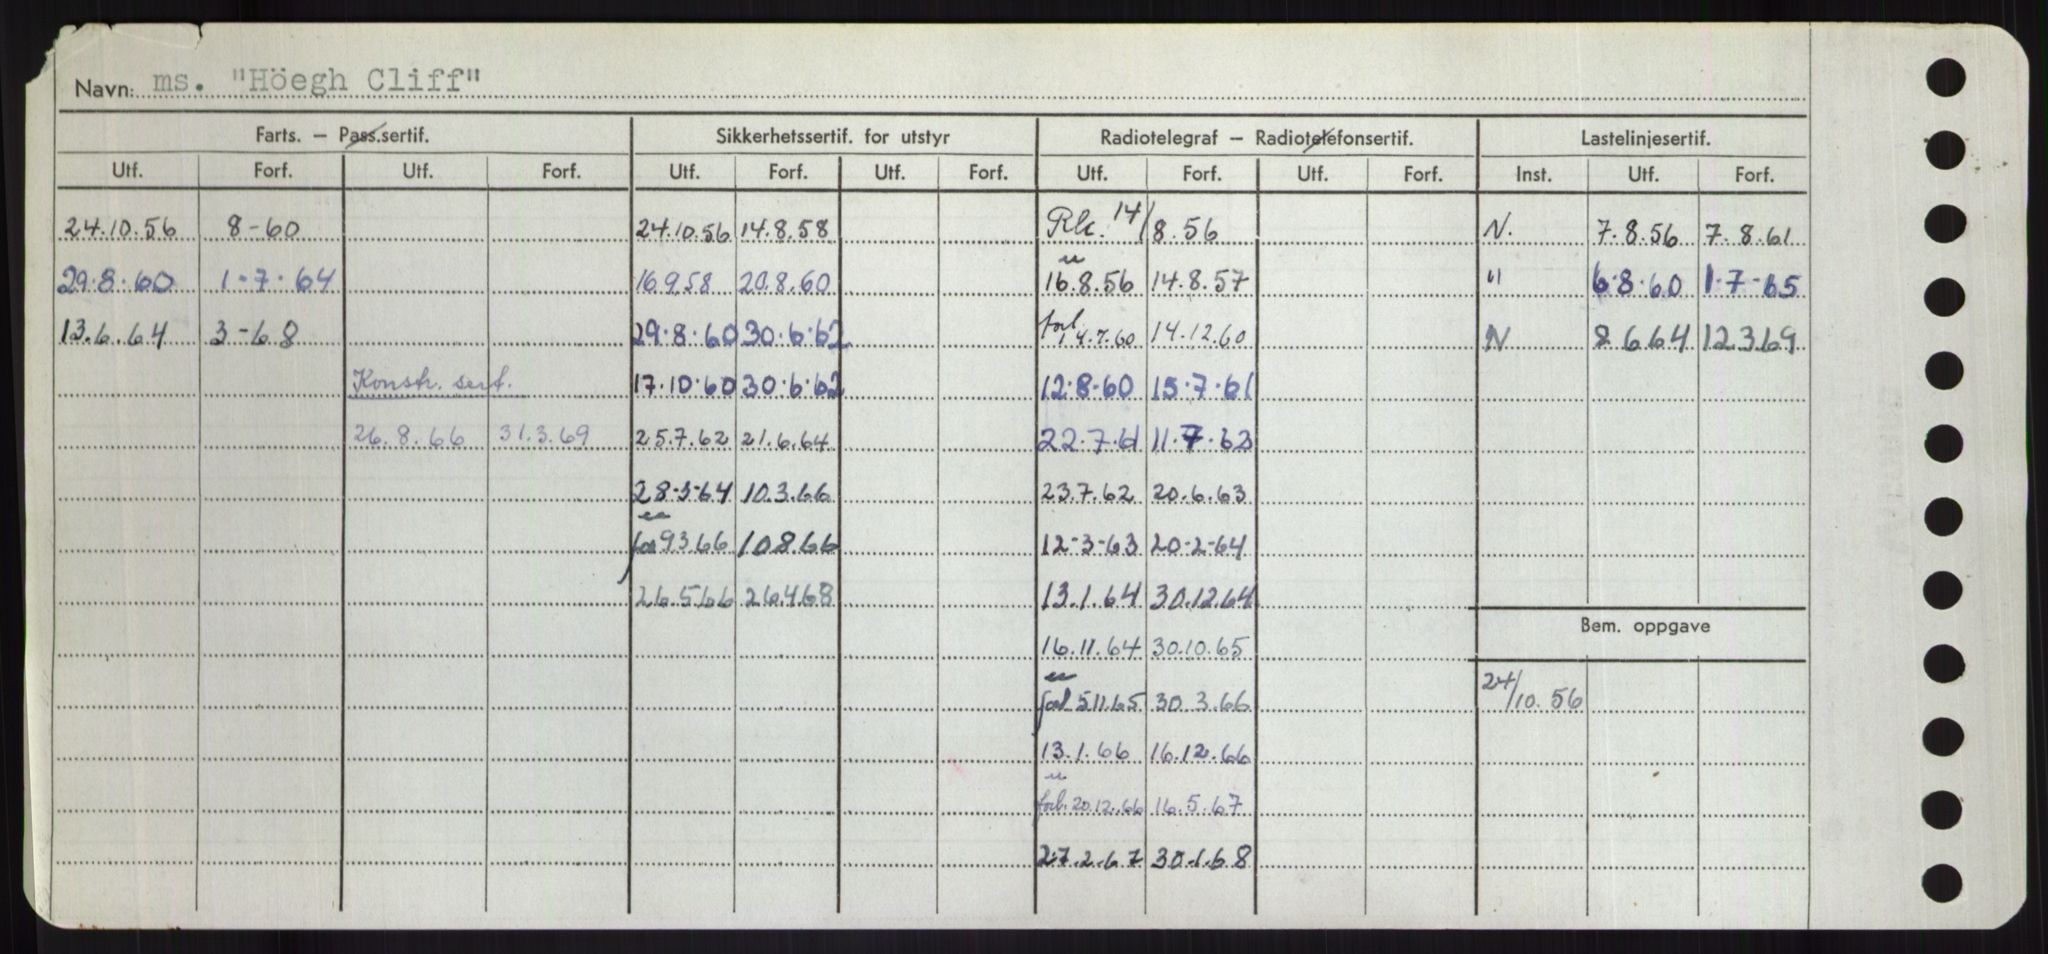 Navn: ms. "Höegh Cliff"
Farts. – Pass.sertif. Sikkerhetssertif. for utstyr Radiotelegraf – Radiotelefonsertif. Lastelinjesertif.
Utf. Forf. Utf. Forf. Utf. Forf. Utf. Forf. Utf. Forf. Utf. Forf. Inst. Utf. Forf.
24.10.56 8-60 24.10.56 14.8.58 14/8.56 N. 7.8.56 7.8.61
29.8.60 1.7.64 16.9.58 20.8.60 16.8.56 14.8.57 " 6.8.60 1.7-65
13.6.64 3-68 29.8.60 30.6.62 14.7.60 14.12.60 N 8 6 64 12 3 69
Konstr. sert. 17.10.60 30.6.62 12.8-60 15.7.61
26.8.66 31.3.69 25.7.62 21.6.64 22.7.61 11.7.62
28-3-64 10.3.66 23.7.62 20.6.63
9 3 66 10 8 66 12-3-63 20-2-64
26.5 66 26.4 68 13.1.64 30.12.64
Bem. oppgave
16.11.64 30.10.65
5.11.65 30 3.66 24/10.56
13.1.66 16.12.66
forl. 20.12.66 16.5.67
27.2.67 30.1.68